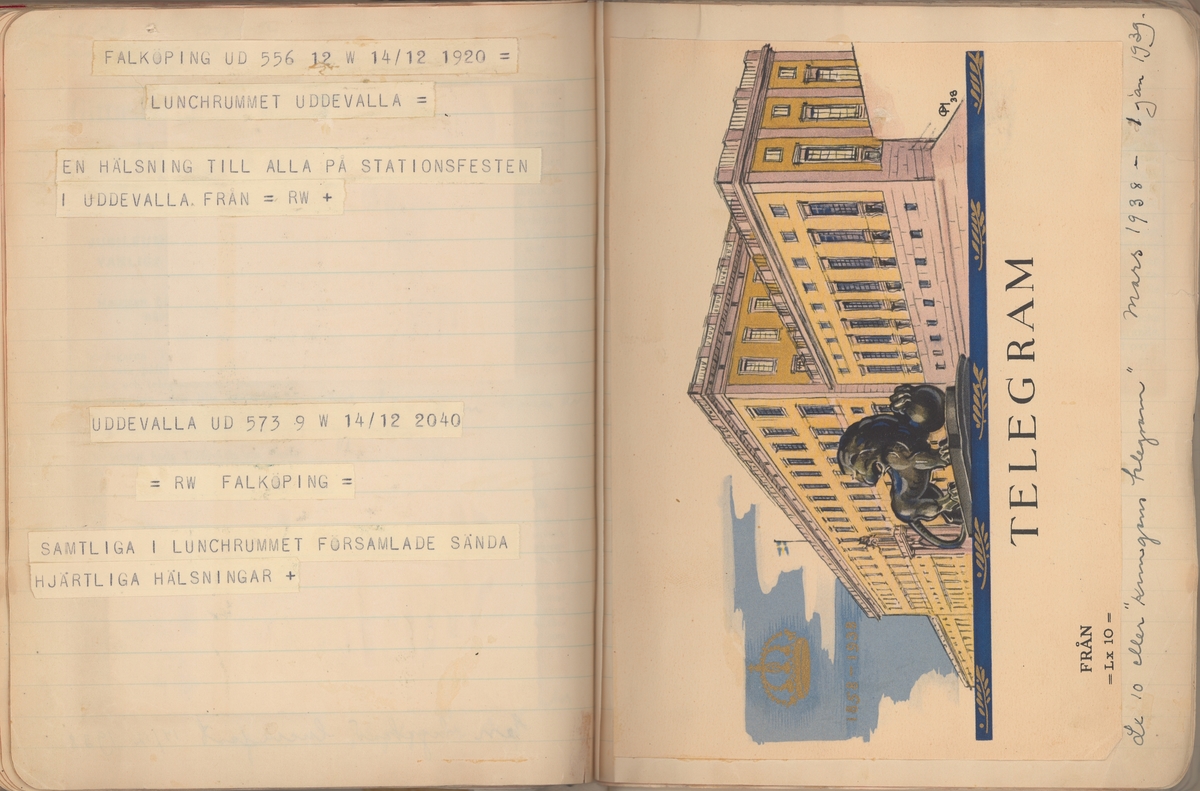 FALKÖPING UD 556 12 W 14/12 1920 =
LUNCHRUMMET UDDEVALLA =
EN HÄLSNING TILL ALLA PÅ STATIONSFESTEN
I UDDEVALLA. FRÅN = RW +
UDDEVALLA UD 573 9 W 14/12 2040
= RW FALKÖPING =
SAMTLIGA I LUNCHRUMMET FÖRSAMLADE SÄNDA
HJÄRTLIGA HÄLSNINGAR +
38
TELEGRAM
FRÅN
= Lx 10 =
Lx 10 eller "kunugens telegram" Mars 1938 – 1 jan 1939.